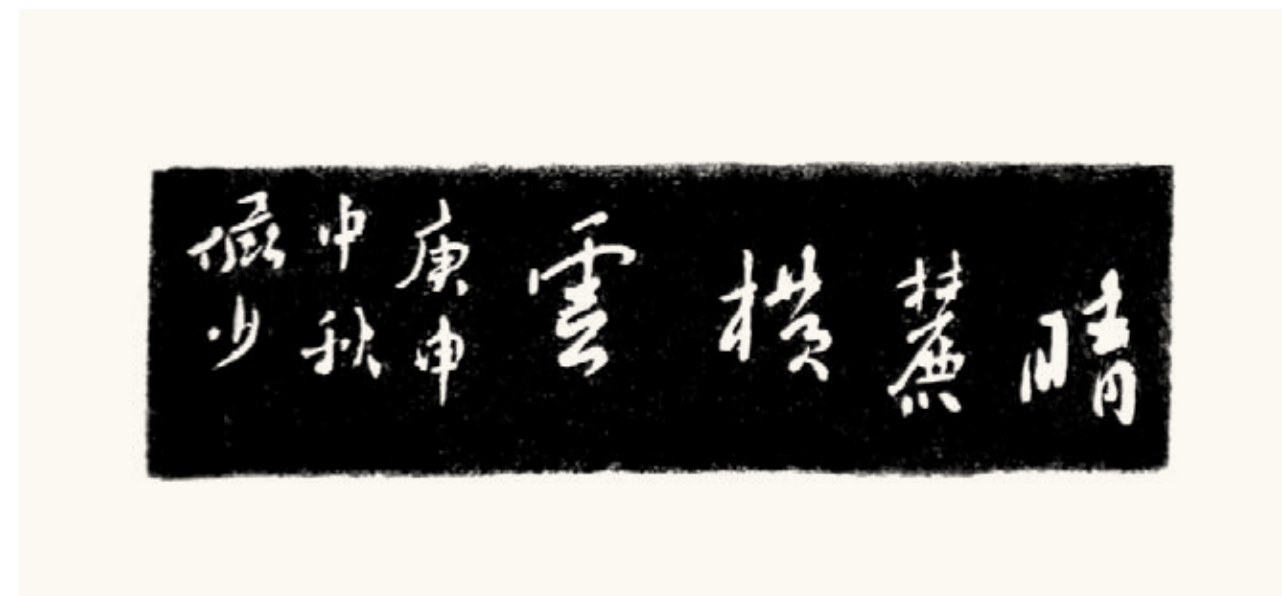 晴麓横雲
庚申
中秋
儼少